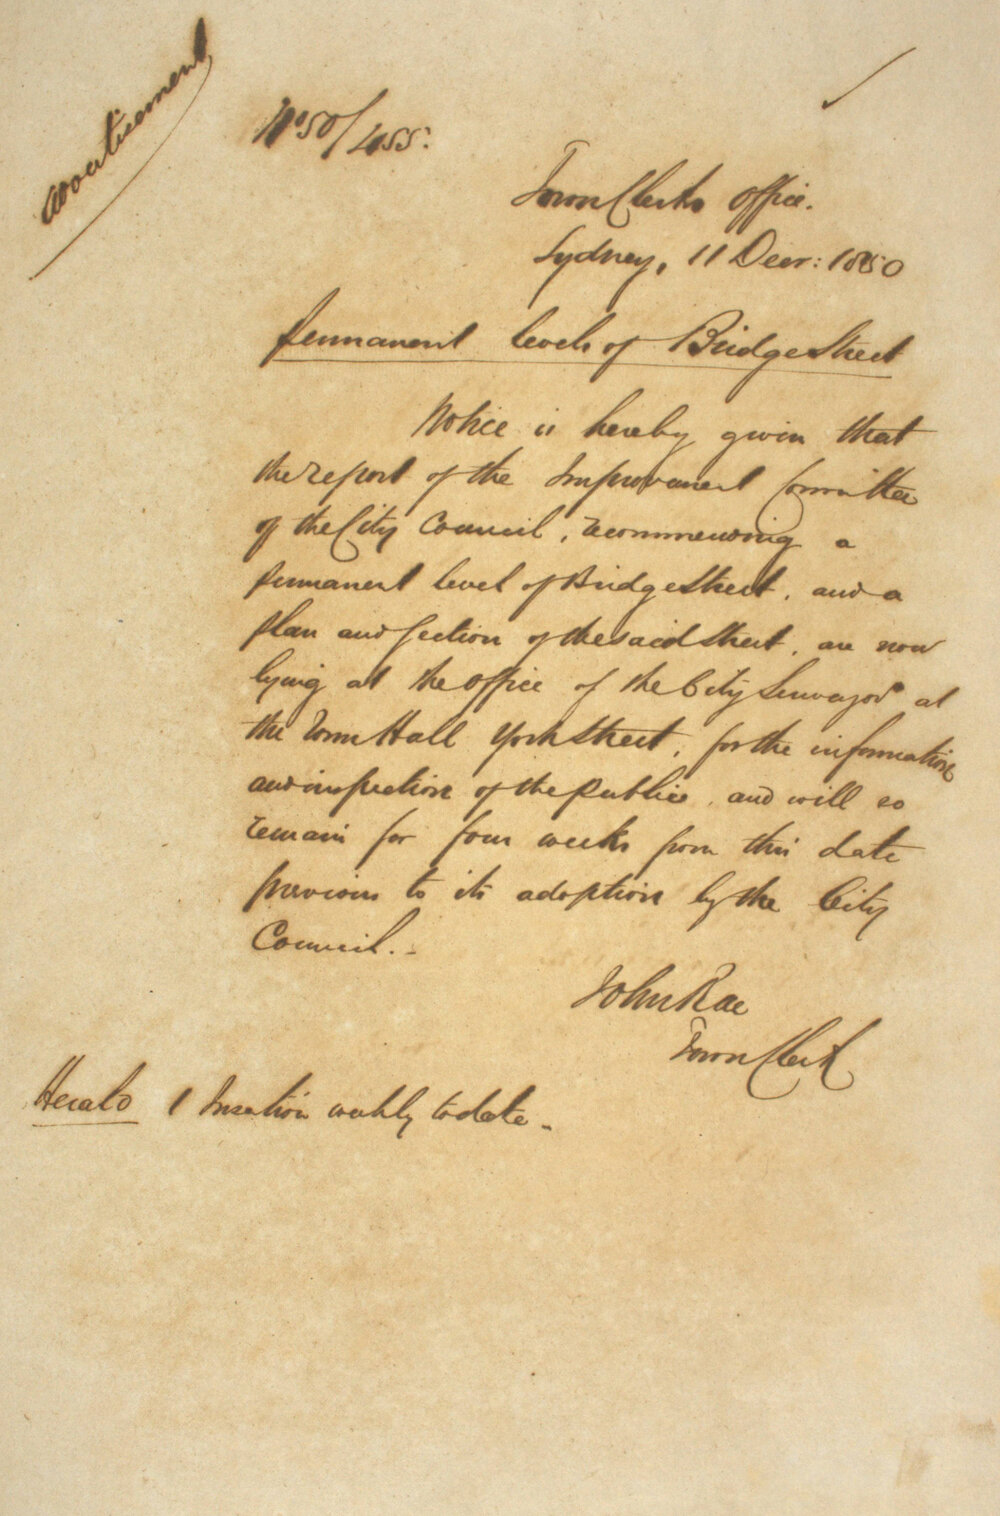 Advertisement
No 50/455.
Town Clerks Office.
Sydney, 11 Decr: 1850
Permanent levels of Bridge Street
Notice is hereby given that
the report of the Improvement Committee
of the City Council, recommending a
permanent level of Bridge Street, and a
plan and section of the said Street, are now
lying at the office of the City Surveyor at
the Town Hall York Street, for the information
and inspection of the public, and will so
remain for four weeks from this date
previous to its adoption by the City
Council.
John Rae
Town Clerk
Herald 1 Insertion weekly to date